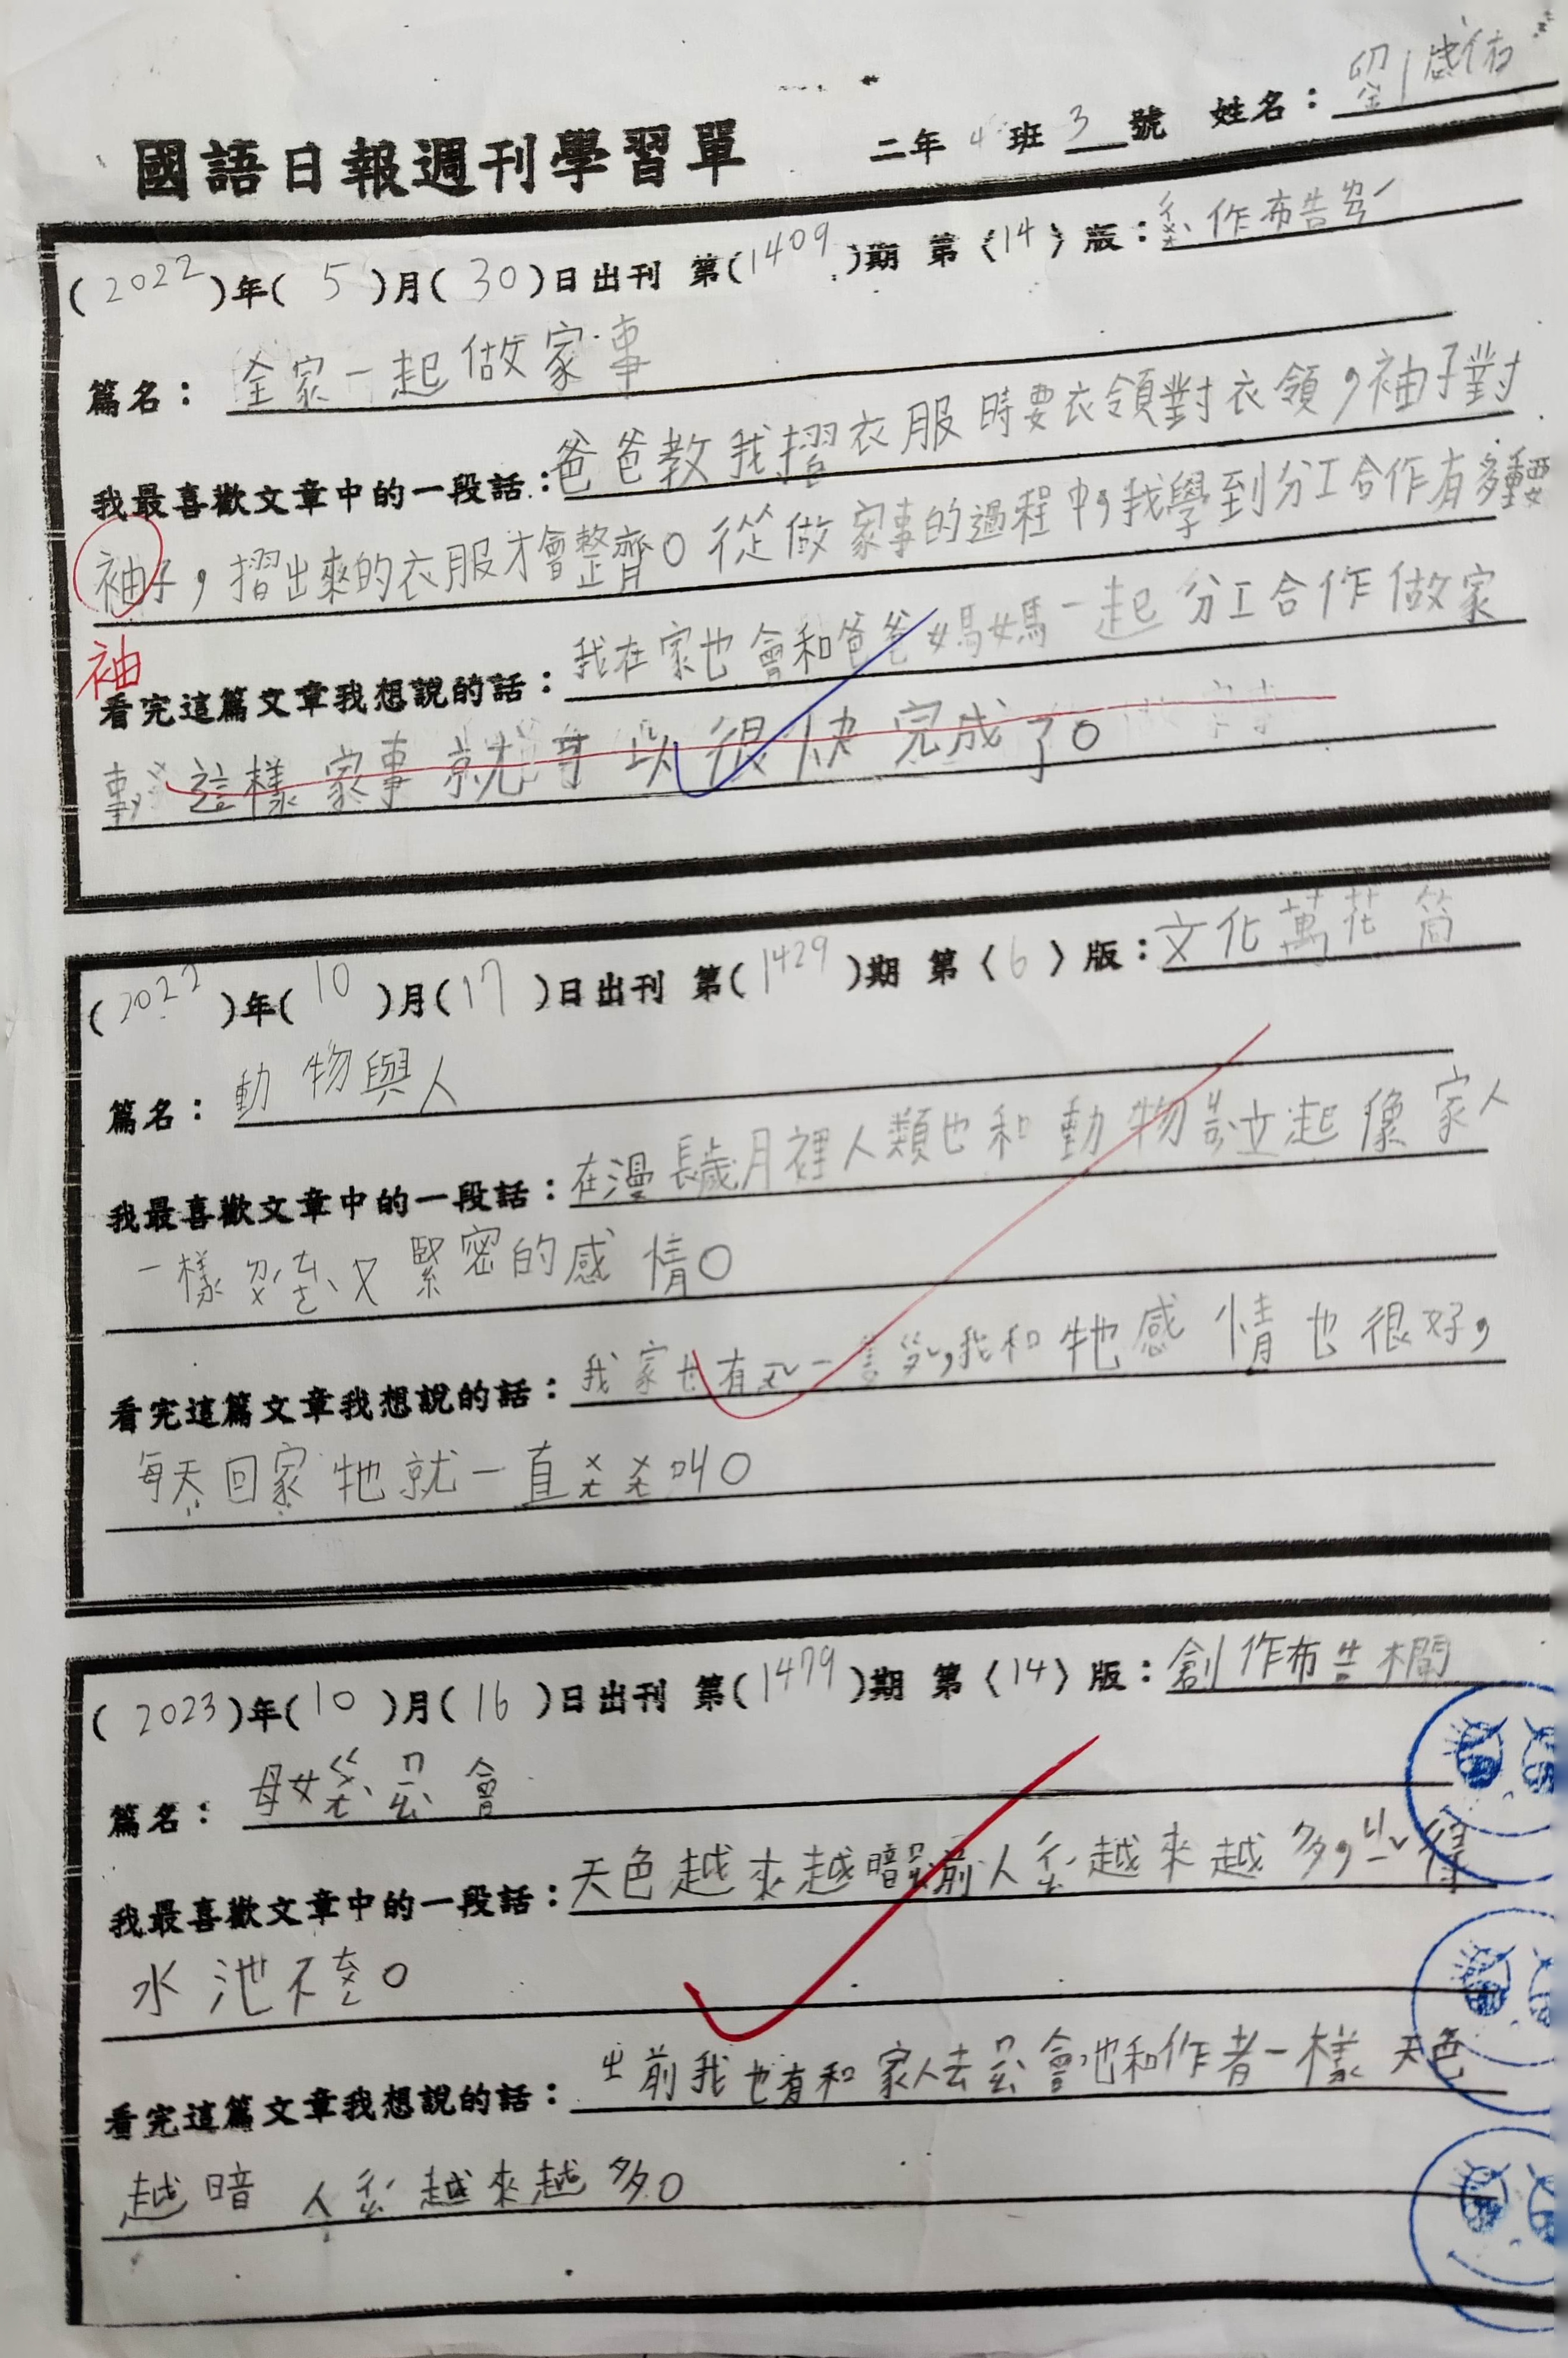 國語日報週刊學習單 二年4班3號 姓名：劉
(2022)年(5)月(30)日出刊 第(1409)期 第〈14〉版：作布告
篇名：全家一起做家事
我最喜歡文章中的一段話：爸爸教我摺衣服時要衣領對衣領，袖子對
袖子，摺出來的衣服才會整齊。從做家事的過程中，我學到分工合作有多重要
袖
看完這篇文章我想說的話：我在家也會和爸爸媽媽一起分工合作做家
事，這樣家事就可以很快完成了。
(2022)年(10)月(17)日出刊 第(1429)期 第〈6〉版：文化萬花筒
篇名：動物與人
我最喜歡文章中的一段話：在漫長歲月裡人類也和動物ㄐㄧㄢˋ立起像家人
一樣ㄉㄨˊㄊㄜˋ又緊密的感情。
看完這篇文章我想說的話：我家也有ㄧㄤˇ一隻ㄍㄡˇ，我和牠感情也很好，
每天回家牠就一直ㄨㄤㄨㄤ叫。
(2023)年(10)月(16)日出刊 第(1479)期 第〈14〉版：創作布告欄
篇名：母女ㄍㄨㄤˋㄇㄧㄠˋ會
我最喜歡文章中的一段話：天色越來越暗ㄇㄧㄠˋ前人ㄔㄠˊ越來越多，ㄐㄧˇ得
水池不ㄊㄨㄥ。
看完這篇文章我想說的話：ㄓ前我也有和家人去ㄇㄧㄠˋ會，也和作者一樣天色
越暗 人ㄔㄠˊ越來越多。